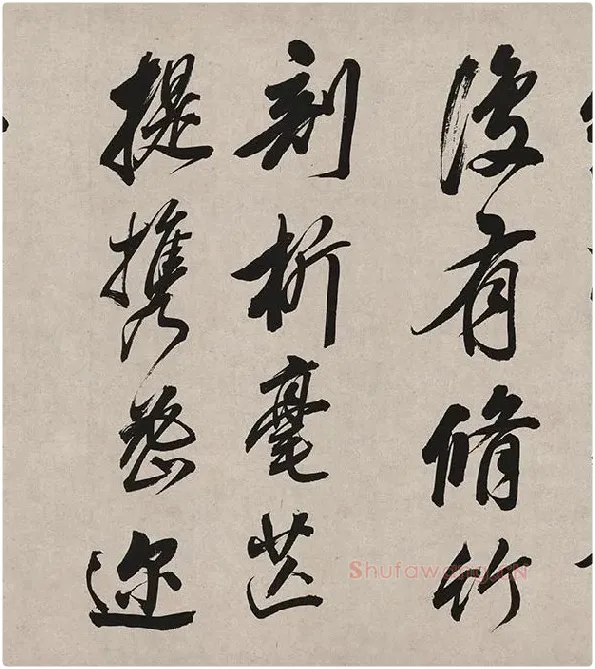 後有脩竹
剖析毫芒
提携迩
Shufawang.CN